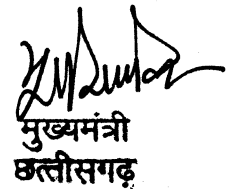 मुख्यमंत्री
छत्तीसगढ़